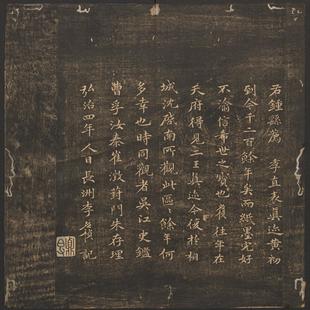 右鍾繇薦季直表真迹黄初
到今千二百餘年矣而紙墨完好
不渝信希世之寶也僕往年在
天府得見二王真迹今復於相
城沈啓南所觀此區區餘年何
多幸也時同觀者吳江史鑑
曹孚汝泰崔澂葑門朱存理
弘治四年人日長洲李應禎記